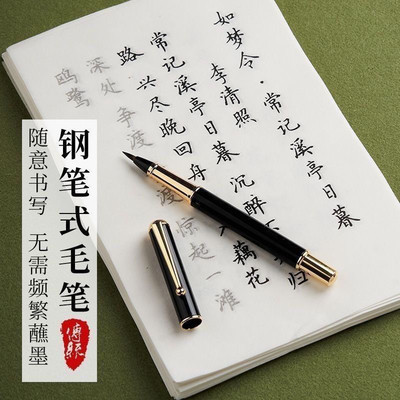 如梦令·常记溪亭日暮
李清照
常记溪亭日暮 沉醉不归
路 兴尽晚回舟 藕花
深处 争渡 渡 惊起一滩
鸥鹭
钢笔式毛笔
随意书写 无需频繁蘸墨
傳統